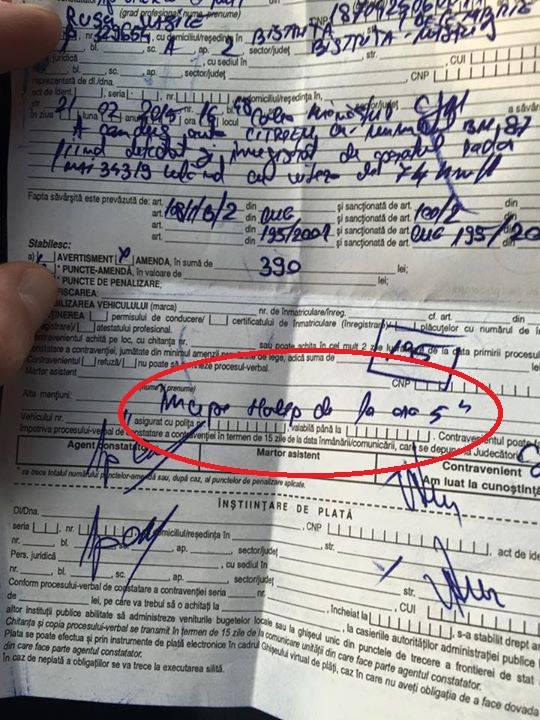 (grad profesional, nume, prenume)
CNP
329654, cu domiciliul/reşedinţa în BISTRITA
bl. sc. A, ap. 2 sector/judeţ BISTRITA-
juridică str. , CUI
nr. , bl. , sc. , ap. , sector/judeţ , cu sediul în
reprezentată de dl./dna. str. , CNP
act de ident. , seria , nr. , cu domiciliul/reşedinţa în
În ziua 21 luna 07 anul 2015 ora 16 48 locul Cluj a săvârş
A condus auto CITROEN cu numărul BN 87
fiind detectat şi înregistrat de aparatul radar
cu viteza de 74 km/h
Fapta săvârşită este prevăzută de: art. 108/1/b/2 din OUG şi sancţionată de art. 100/2 din
art. din 195/2002 şi sancţionată de art. OUG 195/20
art. din şi sancţionată de art. din
Stabilesc:
a) AVERTISMENT X AMENDA, în sumă de 390 lei;
* PUNCTE-AMENDĂ, în valoare de lei;
* PUNCTE DE PENALIZARE,
FISCAREA
BILIZAREA VEHICULULUI (marca) nr. de înmatriculare/înreg. cf. art. din
ŢINEREA permisului de conducere/ certificatului de înmatriculare (înregistrare)/ plăcuţelor cu numărul de în
egistrare)/ atestatului profesional.
achită pe loc, cu chitanţa nr. sau poate achita în cel mult 2 zile lucrătoare de la data primirii procesul
constatare a contravenţiei, jumătate din minimul amenzii prevăzute de lege, adică suma de 195 lei
Contravenientul refuză/ nu poate să semneze procesul-verbal.
Martor asistent CNP
(nume şi prenume)
Alte menţiuni: "Incepe Halep de la ora 5"
Vehiculul nr. asigurat cu poliţa nr. , valabilă până la . Contravenientul poate fa
Împotriva procesului-verbal de constatare a contravenţiei în termen de 15 zile de la data înmânării/comunicării, care se depune la Judecători
Agent constatator
Martor asistent
Contravenient
Am luat la cunoştinţ
* se trece totalul numărului punctelor-amendă sau, după caz, al punctelor de penalizare aplicate.
ÎNŞTIINŢARE DE PLATĂ
Dl/Dna. , CNP , act de iden
seria , nr. , cu domiciliul/reşedinţa în str.
nr. , bl. , sc. , ap. , sector/judeţ
Pers. juridică , cu sediul în str.
nr. , bl. , sc. , ap. , sector/judeţ , CUI
Conform procesului-verbal de constatare a contravenţiei seria nr. , încheiat la , s-a stabilit drept am
de lei, pe care va trebui să o achitaţi la , la casieriile autorităţilor administraţiei publice l
altor instituţii publice abilitate să administreze veniturile bugetelor locale sau la ghişeul unic din punctele de trecere a frontierei de stat
Chitanţa şi copia procesului-verbal se transmit în termen de 15 zile de la comunicare unităţii din care face parte agentul constatator.
Plata se poate efectua şi prin instrumente de plată electronice în cadrul Ghişeului virtual de plăţi, caz în care nu aveţi obligaţia de a face dovada
din care face parte agentul constatator.
În caz de neplată a obligaţiilor se va trece la executarea silită.